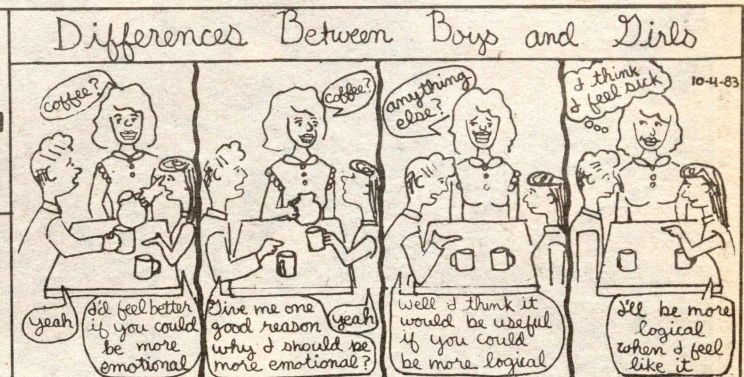 Differences Between Boys and Girls
coffee?
yeah
I'd feel better
if you could
be more
emotional
coffee?
Give me one
good reason
why I should be
more emotional?
yeah
anything
else?
Well I think it
would be useful
if you could
be more logical
I think
I feel sick
10-4-83
I'll be more
logical
when I feel
like it